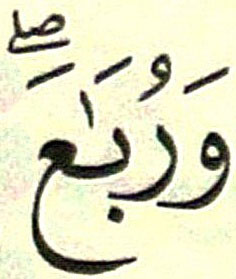 وَرُبَٰعَۖ